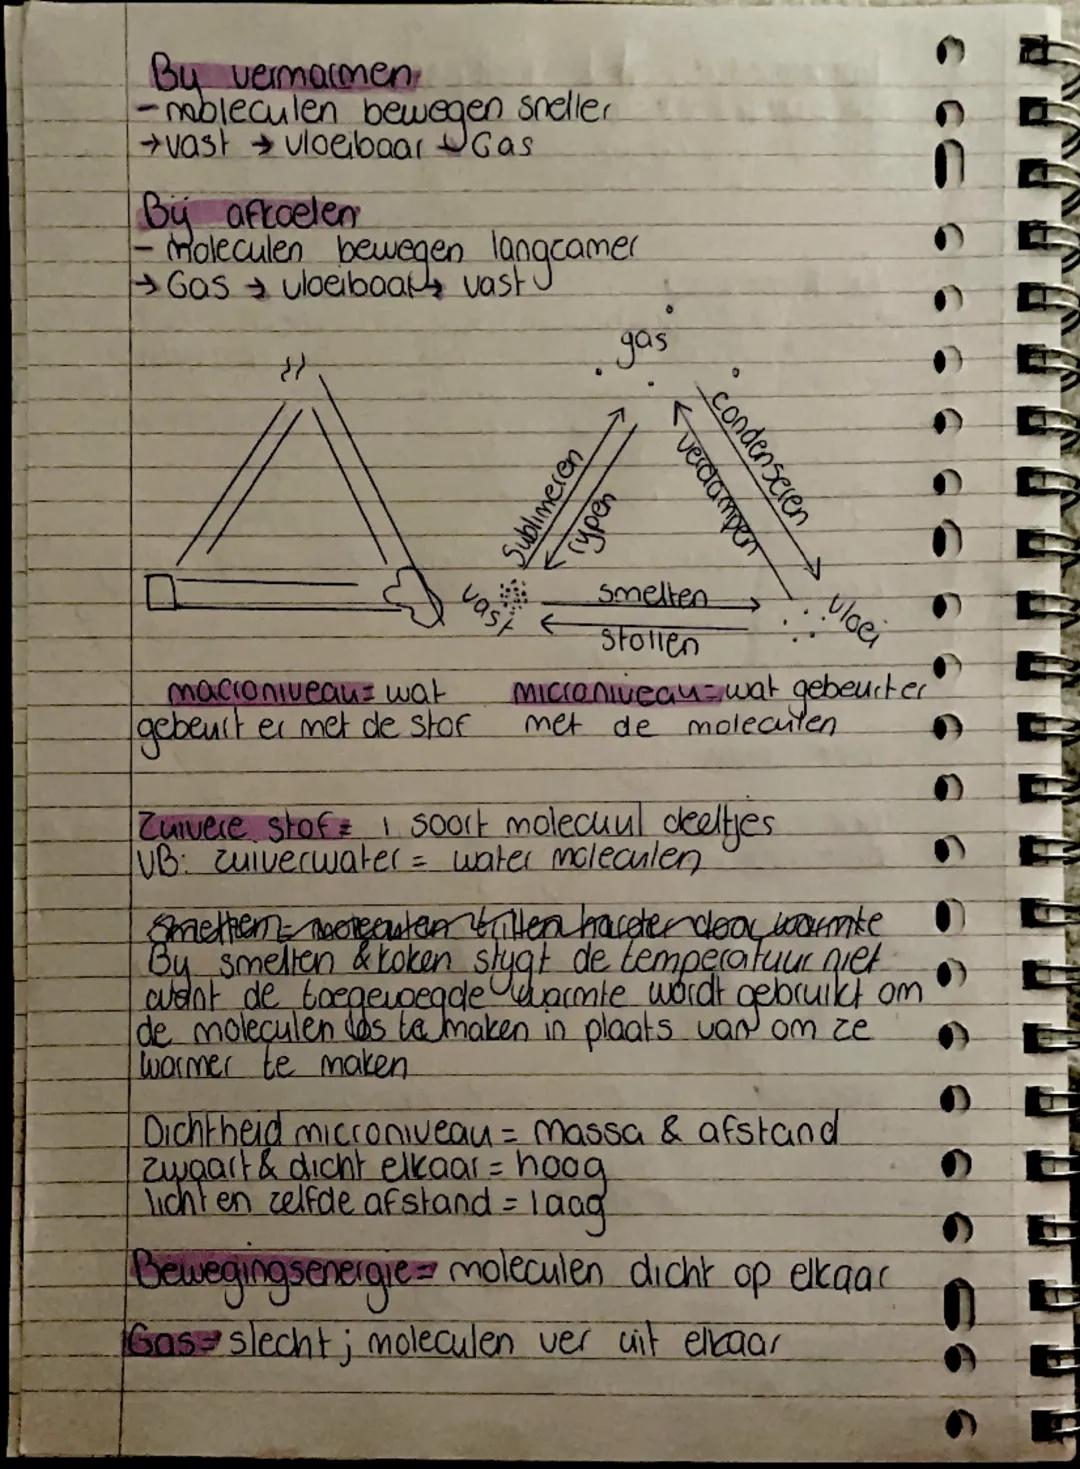 By verwarmen
- moleculen bewegen sneller
→ vast → vloeibaar → Gas
Bij afkoelen
- moleculen bewegen langzamer
→ Gas → vloeibaar → vast
gas
Sublimeren
rypen
condenseren
verdampen
vast
smelten
stollen
vloei
macroniveau = wat
gebeurt er met de stof
microniveau = wat gebeurt er
met de moleculen
Zuivere stof = 1 soort molecuul deeltjes
VB: zuiverwater = water moleculen
Smelten = moleculen trillen harder door warmte
By smelten & koken stygt de temperatuur niet
want de toegevoegde warmte wordt gebruikt om
de moleculen los te maken in plaats van om ze
warmer te maken
Dichtheid microniveau = massa & afstand
zwaart & dicht elkaar = hoog
licht en zelfde afstand = laag
Bewegingsenergie = moleculen dicht op elkaar
Gas = slecht ; moleculen ver uit elkaar